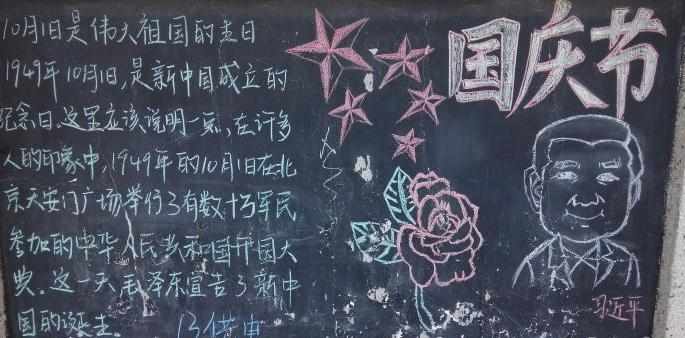 国庆节
10月1日是伟大祖国的生日
1949年10月1日,是新中国成立的
纪念日.这里应该说明一点,在许多
人的印象中,1949年的10月1日在北
京天安门广场举行了有数十万军民
参加的中华人民共和国开国大
典.这一天毛泽东宣告了新中
国的诞生.
习近平